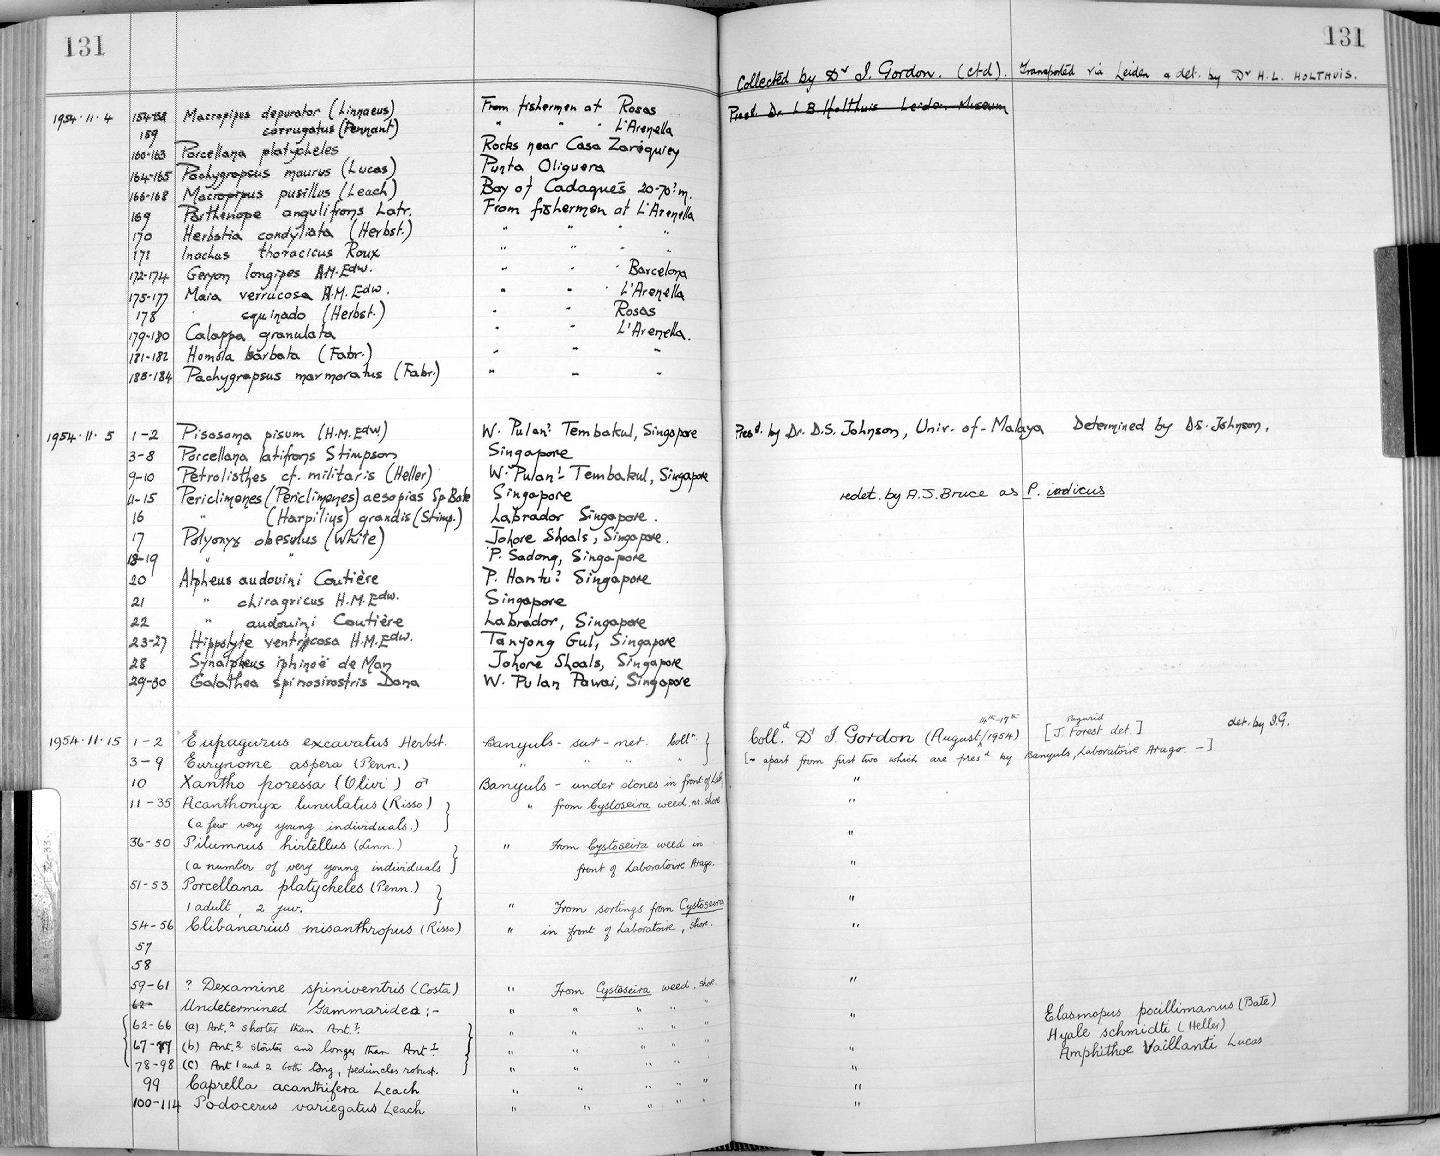 131
131
Collected by Dr I. Gordon. (ctd). Transported via Leiden & det. by Dr H.L. HOLTHUIS.
1954·11·4 154-158 Macropipus depurator (Linnaeus) From fishermen at Rosas Presd. Dr. L B Holthuis Leiden Museum
159 corrugatus (Pennant) " " " L'Arenella
160-163 Porcellana platycheles Rocks near Casa Zariquiey
164-165 Pachygrapsus maurus (Lucas) Punta Oliguera
166-168 Macropipus pusillus (Leach) Bay of Cadaqués 20-70? m.
169 Parthenope angulifrons Latr. From fishermen at L'Arenella
170 Herbstia condyliata (Herbst.) " " " "
171 Inachus thoracicus Roux " " " "
172-174 Geryon longipes A.M.Edw. " " " Barcelona
175-177 Maia verrucosa H.M.Edw. " " " L'Arenella
178 " squinado (Herbst.) " " Rosas
179-180 Calappa granulata " " L'Arenella.
181-182 Homola barbata (Fabr.) " " "
183-184 Pachygrapsus marmoratus (Fabr.) " " "
1954·11·5 1-2 Pisosoma pisum (H.M.Edw) W. Pulan? Tembakul, Singapore Presd. by Dr. D.S. Johnson, Univ. of Malaya Determined by D.S. Johnson.
3-8 Porcellana latifrons Stimpson Singapore
9-10 Petrolisthes cf. militaris (Heller) W. Pulan? Tembakul, Singapore
11-15 Periclimenes (Periclimenes) aesopias Sp. Bate Singapore redet. by A.J. Bruce as P. indicus
16 " (Harpilius) grandis (Stimp.) Labrador Singapore.
17 Polyonyx obesulus (White) Johore Shoals, Singapore.
18-19 " " P. Sadong, Singapore
20 Alpheus audouini Coutière P. Hantu? Singapore
21 " chiragricus H.M.Edw. Singapore
22 " audouini Coutière Labrador, Singapore
23-27 Hippolyte ventricosa H.M.Edw. Tanyong Gul, Singapore
28 Synalpheus iphinoë de Man Johore Shoals, Singapore
29-30 Galathea spinosirostris Dana W. Pulan Pawai, Singapore
1954·11·15 1-2 Eupagurus excavatus Herbst. Banyuls - sur - mer. Colln. } Colld. Dr I Gordon (August 14th-17th /1954) [Pagurid J. Forest det.] det. by I.G.
3-9 Eurynome aspera (Penn.) " " " " } [- apart from first two which are presd by Banyuls, Laboratoire Arago. -]
10 Xantho poressa (Olivi) ♂ Banyuls - under stones in front of Lab "
11-35 Acanthonyx lunulatus (Risso) } " from Cystoseira weed nr. shore "
(a few very young individuals.) } "
36-50 Pilumnus hirtellus (Linn.) } " From Cystoseira weed in
(a number of very young individuals } front of Laboratoire Arago. "
51-53 Porcellana platycheles (Penn.) }
1 adult, 2 juv. } " From sortings from Cystoseira "
54-56 Clibanarius misanthropus (Risso) " in front of Laboratoire, shore. "
57
58
59-61 ? Dexamine spiniventris (Costa) " From Cystoseira weed. shore "
62- Undetermined Gammaridea :- " " " " Elasmopus pocillimanus (Bate)
62-66 (a) Ant. 2 shorter than Ant. 1. " " " " " Hyale schmidti (Heller)
67-77 (b) Ant. 2 stouter and longer than Ant 1 " " " " " Amphithoe Vaillanti Lucas
78-98 (c) Ant 1 and 2 both long, peduncles robust. " " " " "
99 Caprella acanthifera Leach " " " " "
100-114 Podocerus variegatus Leach " " " " "